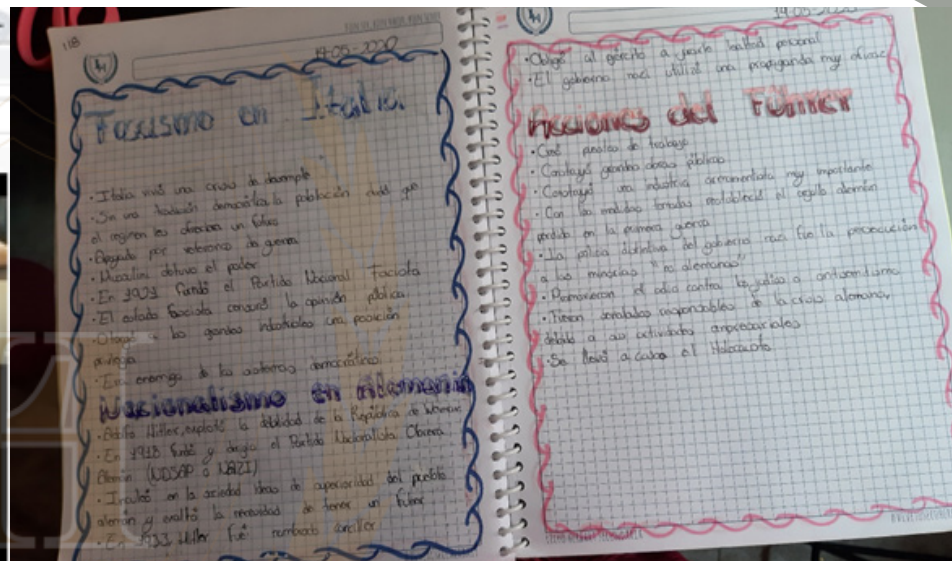 118
19-05-2020
Fascismo en Italia
· Italia vivió una crisis de desempleo
· Sin una tradición democrática la población dudó que
el regimen les ofreciera un futuro
· Apoyado por veteranos de guerra
· Mussolini obtuvo el poder
· En 1921 fundó el Partido Nacional Facista
· El estado fascista censuró la opinión pública
· Otorgó a los grandes industriales una posición
· Era enemigo de los sistemas democráticos
Nacionalismo en Alemania
· Adolfo Hitler, explotó la debilidad de la República de Weimar
· En 1918 fundó y dirigió el Partido Nacionalista Obrero
Alemán (NDSAP o NAZI)
· Inculcó en la sociedad ideas de superioridad del pueblo
alemán y exaltó la necesidad de tener un Führer
· En 1933 Hitler fué nombrado canciller
19-05-2020
· Obligó al ejército a jurarle lealtad personal
· El gobierno nazi utilizó una propaganda muy eficaz
Acciones del Führer
· Creó puestos de trabajo
· Construyó grandes obras públicas
· Construyó una industria armamentista muy importante
· Con las medidas tomadas restableció el orgullo alemán
perdido en la primera guerra
· La política distintiva del gobierno nazi fue la persecución
a las minorías "no alemanas"
· Promovieron el odio contra los judíos o antisemitismo
· Fueron señalados responsables de la crisis alemana,
debido a sus actividades empresariales
· Se llevó a cabo el Holocausto